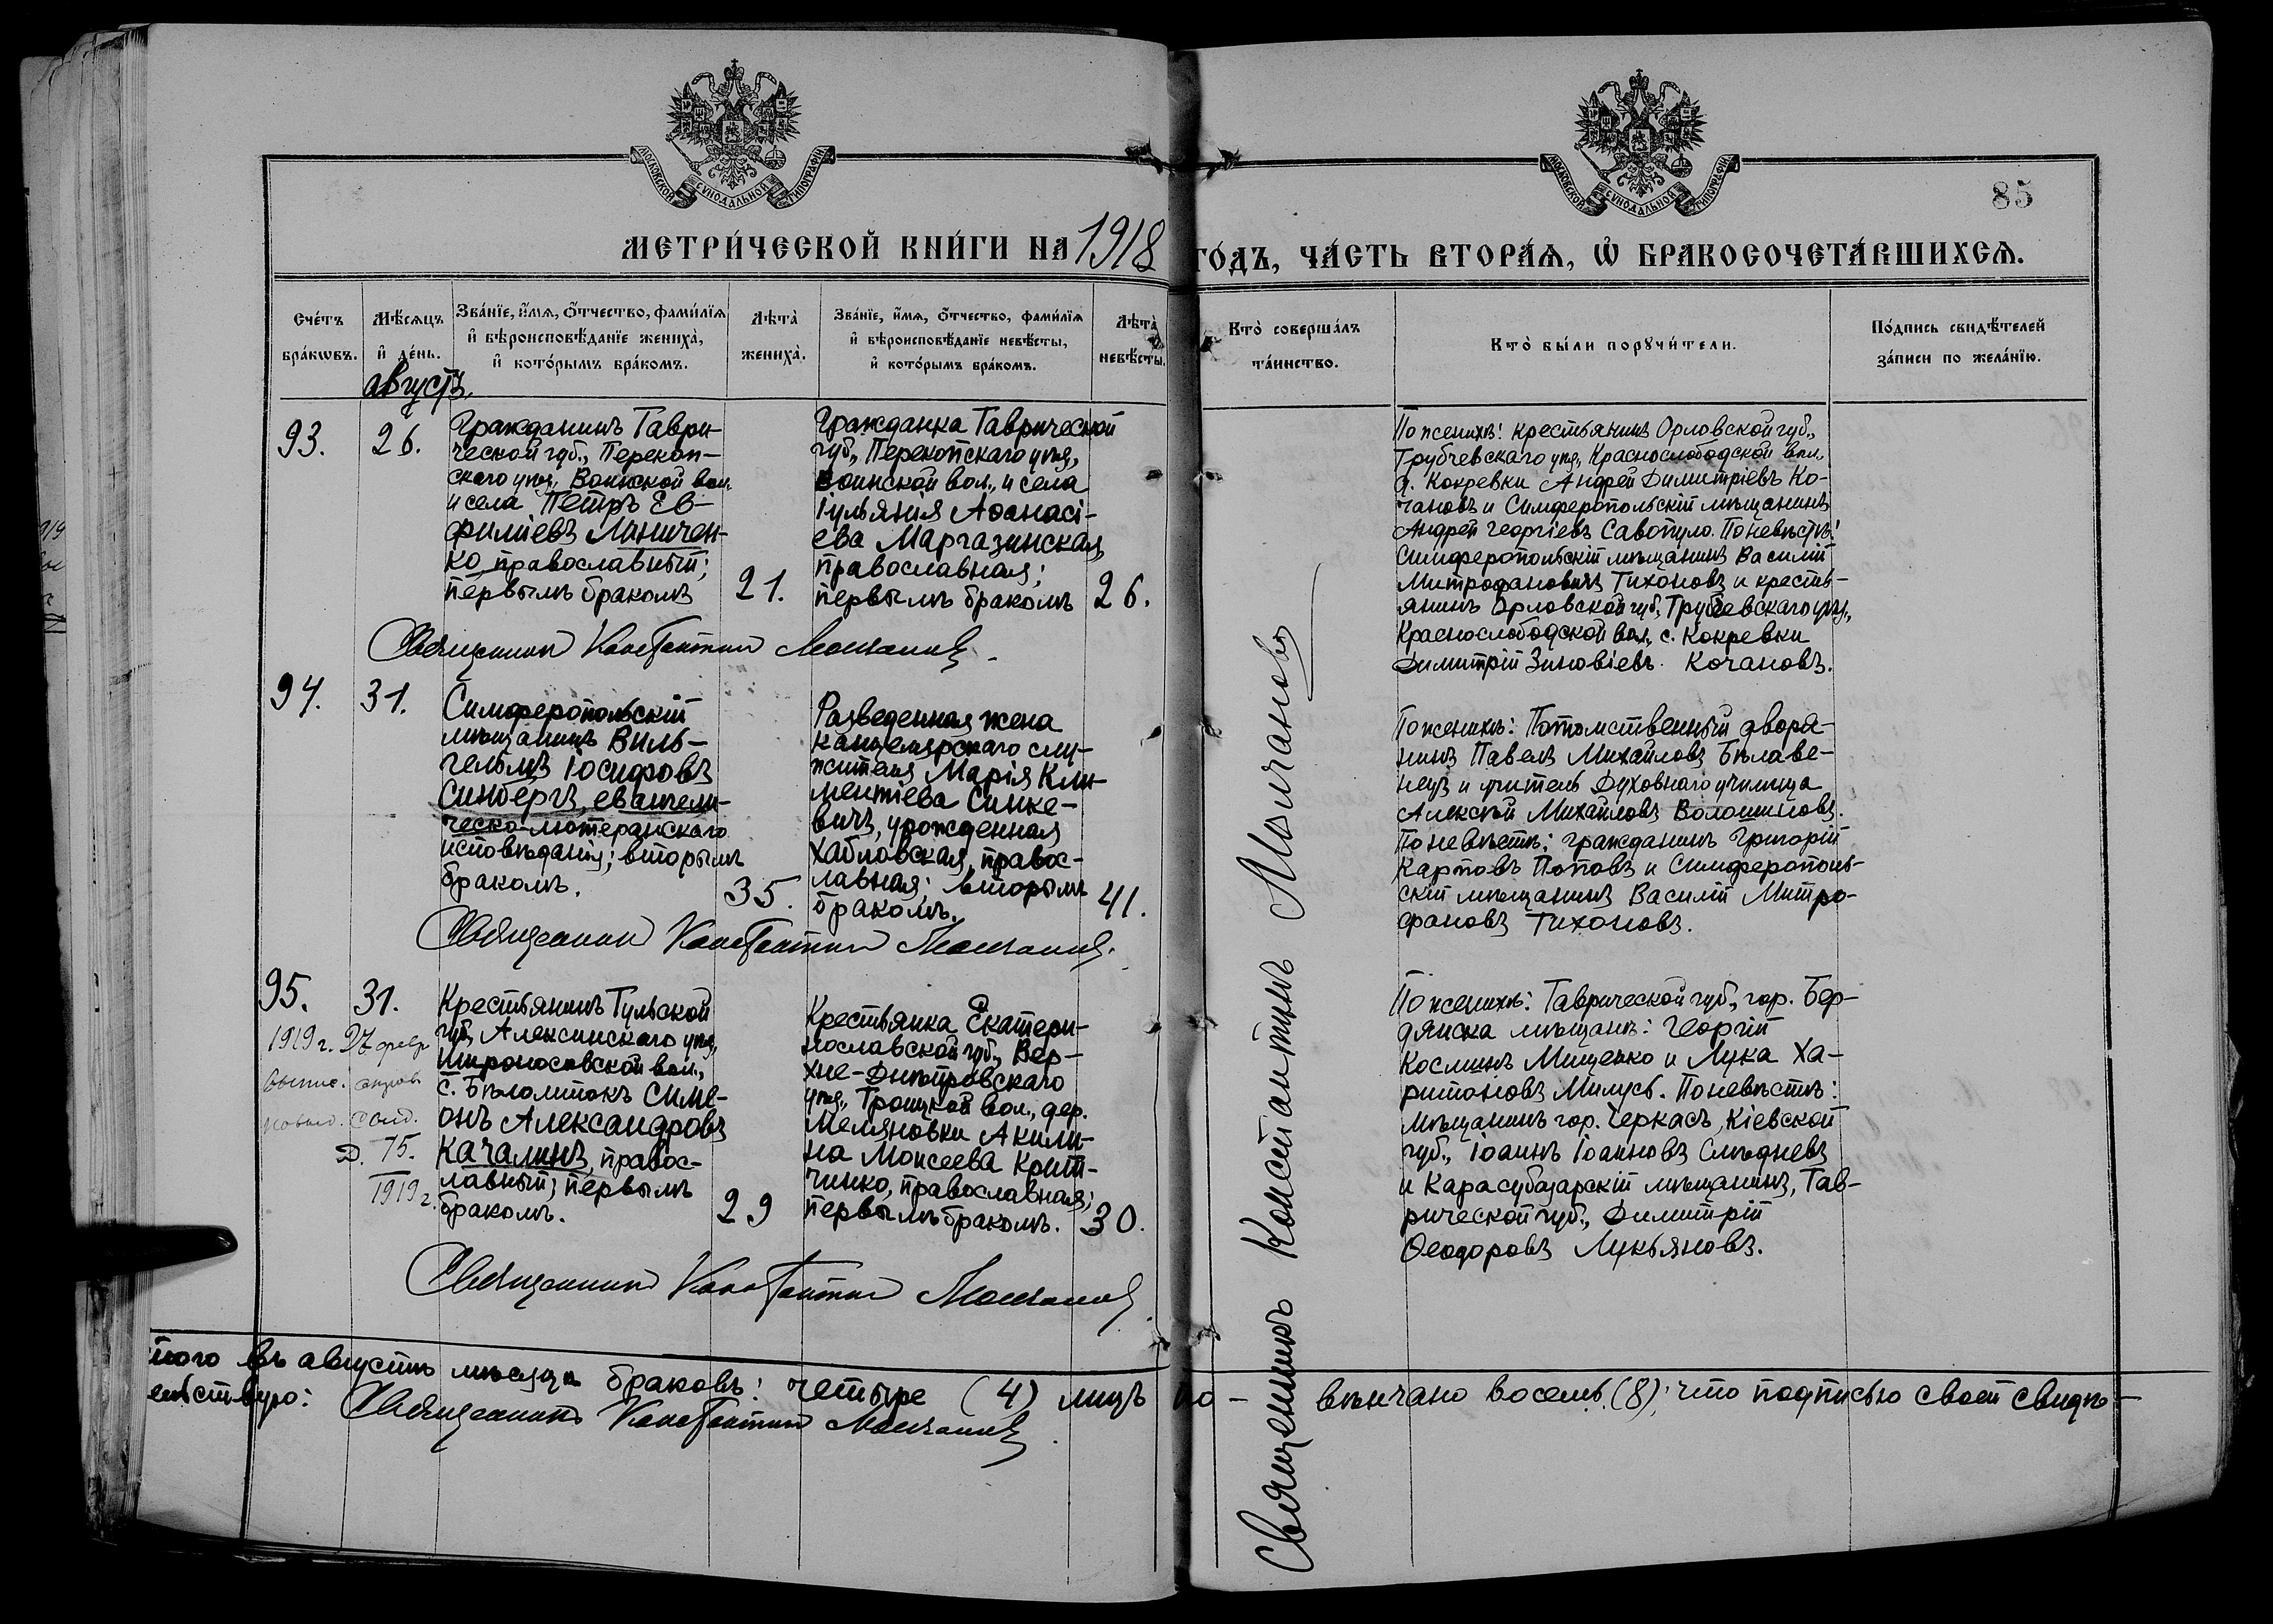 МОСКОВСКОЙ СѴНОДАЛЬНОЙ ТИПОГРАФІИ
МОСКОВСКОЙ СѴНОДАЛЬНОЙ ТИПОГРАФІИ
85
МЕТРИ́ЧЕСКОЙ КНИ́ГИ НА 1918 ГО́ДЪ, ЧА́СТЬ ВТОРА́Ѧ, Ѽ БРАКОСОЧЕТА́ВШИХСѦ.
Сче́тъ бра́кѡвъ.
Мѣ́сѧцъ и҆ де́нь.
Зва́нїе, и҆́мѧ, ѻ҆́тчество, фами́лїѧ и҆ вѣроисповѣ́данїе жениха̀, и҆ кото́рымъ бра́комъ.
Лѣ́та̀ жениха̀.
Зва́нїе, и҆́мѧ, ѻ҆́тчество, фами́лїѧ и҆ вѣроисповѣ́данїе невѣ́сты, и҆ кото́рымъ бра́комъ.
Лѣ́та̀ невѣ́сты.
Кто̀ соверша́лъ та́инство.
Кто̀ бы́ли порꙋчи́тели.
По́дпись свидѣ́телей за́писи по жела́нїю.
августъ.
93.
26.
Гражданинъ Таври-
ческой губ., Перекоп-
скаго уѣз., Воинской вол.
и села Петръ Ев-
фиміевъ Линичен-
ко, православный;
первымъ бракомъ
21.
Гражданка Таврической
губ., Перекопскаго уѣз.,
Воинской вол., и села
Іульянія Аѳанасі-
ева Маргазинская,
православная;
первымъ бракомъ
26.
Священникъ Константинъ Молчановъ.
По женихѣ: крестьянинъ Орловской губ.,
Трубчевскаго уѣз., Краснослободской вол.,
с. Кокревки Андрей Димитріевъ Ко-
чановъ и Симферопольскій мѣщанинъ
Андрей Георгіевъ Савопуло. По невѣстѣ:
Симферопольскій мѣщанинъ Василій
Митрофановичъ Тихоновъ и кресть-
янинъ Орловской губ., Трубчевскаго уѣз.,
Краснослободской вол., с. Кокревки
Димитрій Зиновіевъ Кочановъ.
94.
31.
Симферопольскій
мѣщанинъ Виль-
гельмъ Іосифовъ
Синбергъ, евангели-
ческо-лютеранскаго
исповѣданія; вторымъ
бракомъ.
35.
Разведенная жена
канцелярскаго слу-
жителя Марія Кли-
ментіева Синке-
вичъ, урожденная
Хабловская, правос-
лавная; вторымъ
бракомъ.
41.
Священникъ Константинъ Молчановъ.
По женихѣ: Потомственный дворя-
нинъ Павелъ Михайловъ Бѣлаве-
нецъ и учитель Духовнаго училища
Алексѣй Михайловъ Волошиновъ.
По невѣстѣ: гражданинъ Григорій
Карповъ Поповъ и Симферополь-
скій мѣщанинъ Василій Митро-
фановъ Тихоновъ.
95.
31.
1919 г. 27 февр.
Д. 75.
1919 г.
Крестьянинъ Тульской
губ., Алексинскаго уѣз.,
Широносовской вол.,
с. Бѣломтокъ Симе-
онъ Александровъ
Качалинъ, правос-
лавный; первымъ
бракомъ.
29
Крестьянка Екатери-
нославской губ., Вер-
хне-Днѣпровскаго
уѣз., Троицкой вол., дер.
Меляновки Акили-
на Моисеева Крит-
чинко, православная;
первымъ бракомъ.
30.
Священникъ Константинъ Молчановъ
По женихѣ: Таврической губ., гор. Бер-
дянска мѣщане: Георгій
Косминъ Мищенко и Лука Ха-
ритоновъ Милусь. По невѣстѣ:
мѣщанинъ гор. Черкасъ, Кіевской
губ., Іоаннъ Іоанновъ Слѣдневъ
и Карасубазарскій мѣщанинъ, Тав-
рической губ., Димитрій
Ѳеодоровъ Лукьяновъ.
Священникъ Константинъ Молчановъ
того въ августѣ мѣсяцѣ браковъ: четыре (4) лицъ по-вѣнчано восемь (8); что подписью своей свидѣ-
тельствую: Священникъ Константинъ Молчановъ.